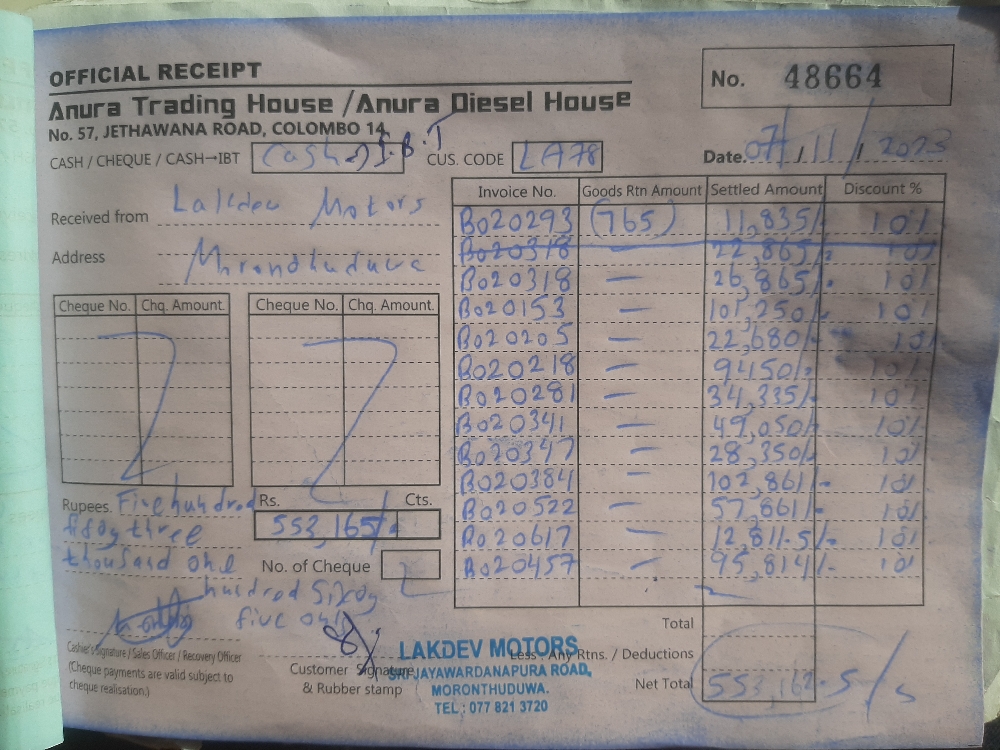 OFFICIAL RECEIPT
No. 48664
Anura Trading House / Anura Diesel House
No. 57, JETHAWANA ROAD, COLOMBO 14.
CASH / CHEQUE / CASH→IBT Cash → I.B.T CUS. CODE LA78 Date. 07/11/2023
Received from Lakdev Motors
Address Morondhuduwa
Invoice No. Goods Rtn Amount Settled Amount Discount %
B020293 (765) 11,835/- 10%
B020318 — 22,865/- 10%
B020318 — 26,865/- 10%
B020153 — 101,250/- 10%
B020205 — 22,680/- 10%
B020218 — 9450/- 10%
B020281 — 34,335/- 10%
B020341 — 49,050/- 10%
B020347 — 28,350/- 10%
B020384 — 102,861/- 10%
B020522 — 57,861/- 10%
B020617 — 12,811.5/- 10%
B020457 — 95,814/- 10%
Cheque No. Chq. Amount Cheque No. Chq. Amount
Rupees. Five hundred
fifty three
thousand one
hundred sixty
five only
Rs. Cts.
553,165/-
No. of Cheque
Total
Less : Any Rtns. / Deductions
Net Total 553,162.5/-
Cashier's Signature / Sales Officer / Recovery Officer
(Cheque payments are valid subject to
cheque realisation.)
Customer Signature
& Rubber stamp
LAKDEV MOTORS
SRI JAYAWARDANAPURA ROAD,
MORONTHUDUWA.
TEL : 077 821 3720